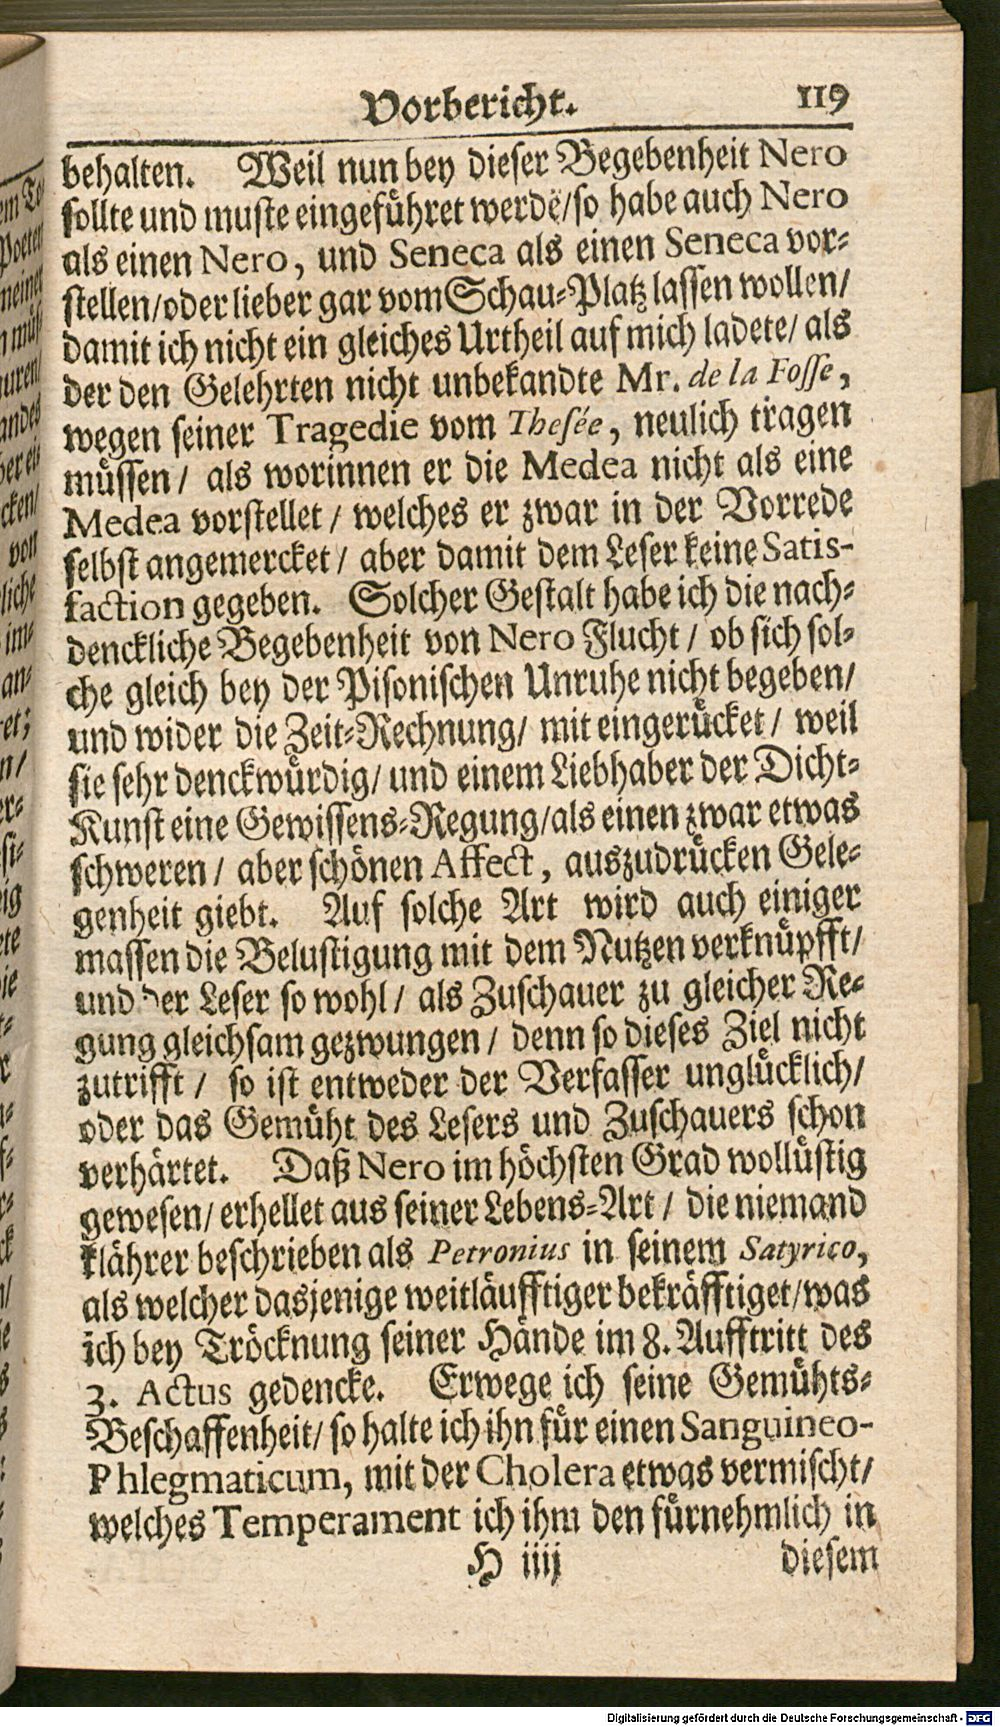 Vorbericht. 119
behalten. Weil nun bey dieser Begebenheit Nero
sollte und muste eingeführet werdē/so habe auch Nero
als einen Nero, und Seneca als einen Seneca vor-
stellen/oder lieber gar vom Schau-Platz lassen wollen/
damit ich nicht ein gleiches Urtheil auf mich ladete/ als
der den Gelehrten nicht unbekandte Mr. de la Fosse,
wegen seiner Tragedie vom Thesée, neulich tragen
müssen/ als worinnen er die Medea nicht als eine
Medea vorstellet/ welches er zwar in der Vorrede
selbst angemercket/ aber damit dem Leser keine Satis-
faction gegeben. Solcher Gestalt habe ich die nach-
denckliche Begebenheit von Nero Flucht/ ob sich sol-
che gleich bey der Pisonischen Unruhe nicht begeben/
und wider die Zeit-Rechnung/ mit eingerücket/ weil
sie sehr denckwürdig/ und einem Liebhaber der Dicht-
Kunst eine Gewissens-Regung/als einen zwar etwas
schweren/ aber schönen Affect, auszudrücken Gele-
genheit giebt. Auf solche Art wird auch einiger
massen die Belustigung mit dem Nutzen verknüpfft/
und der Leser so wohl/ als Zuschauer zu gleicher Re-
gung gleichsam gezwungen/ denn so dieses Ziel nicht
zutrifft/ so ist entweder der Verfasser unglücklich/
oder das Gemüht des Lesers und Zuschauers schon
verhärtet. Daß Nero im höchsten Grad wollüstig
gewesen/ erhellet aus seiner Lebens-Art/ die niemand
klährer beschrieben als Petronius in seinem Satyrico,
als welcher dasjenige weitläufftiger bekräfftiget/was
ich bey Tröcknung seiner Hände im 8. Aufftritt des
3. Actus gedencke. Erwege ich seine Gemühts-
Beschaffenheit/ so halte ich ihn für einen Sanguineo-
Phlegmaticum, mit der Cholera etwas vermischt/
welches Temperament ich ihm den fürnehmlich in
H iiij diesem
Digitalisierung gefördert durch die Deutsche Forschungsgemeinschaft - DFG